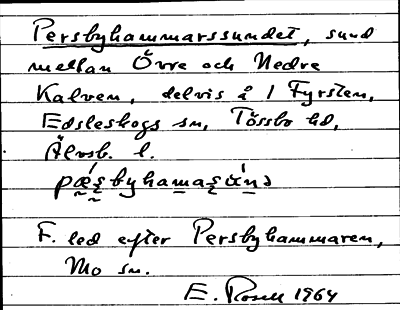 Persbyhammarssundet, sund
mellan Övre och Nedre
Kalven, delvis å / Fyrsten,
Edsleskogs sn, Tössbo hd,
Älvsb. l.
F. led efter Persbyhammaren,
Mo sn.
E. Rosell 1964